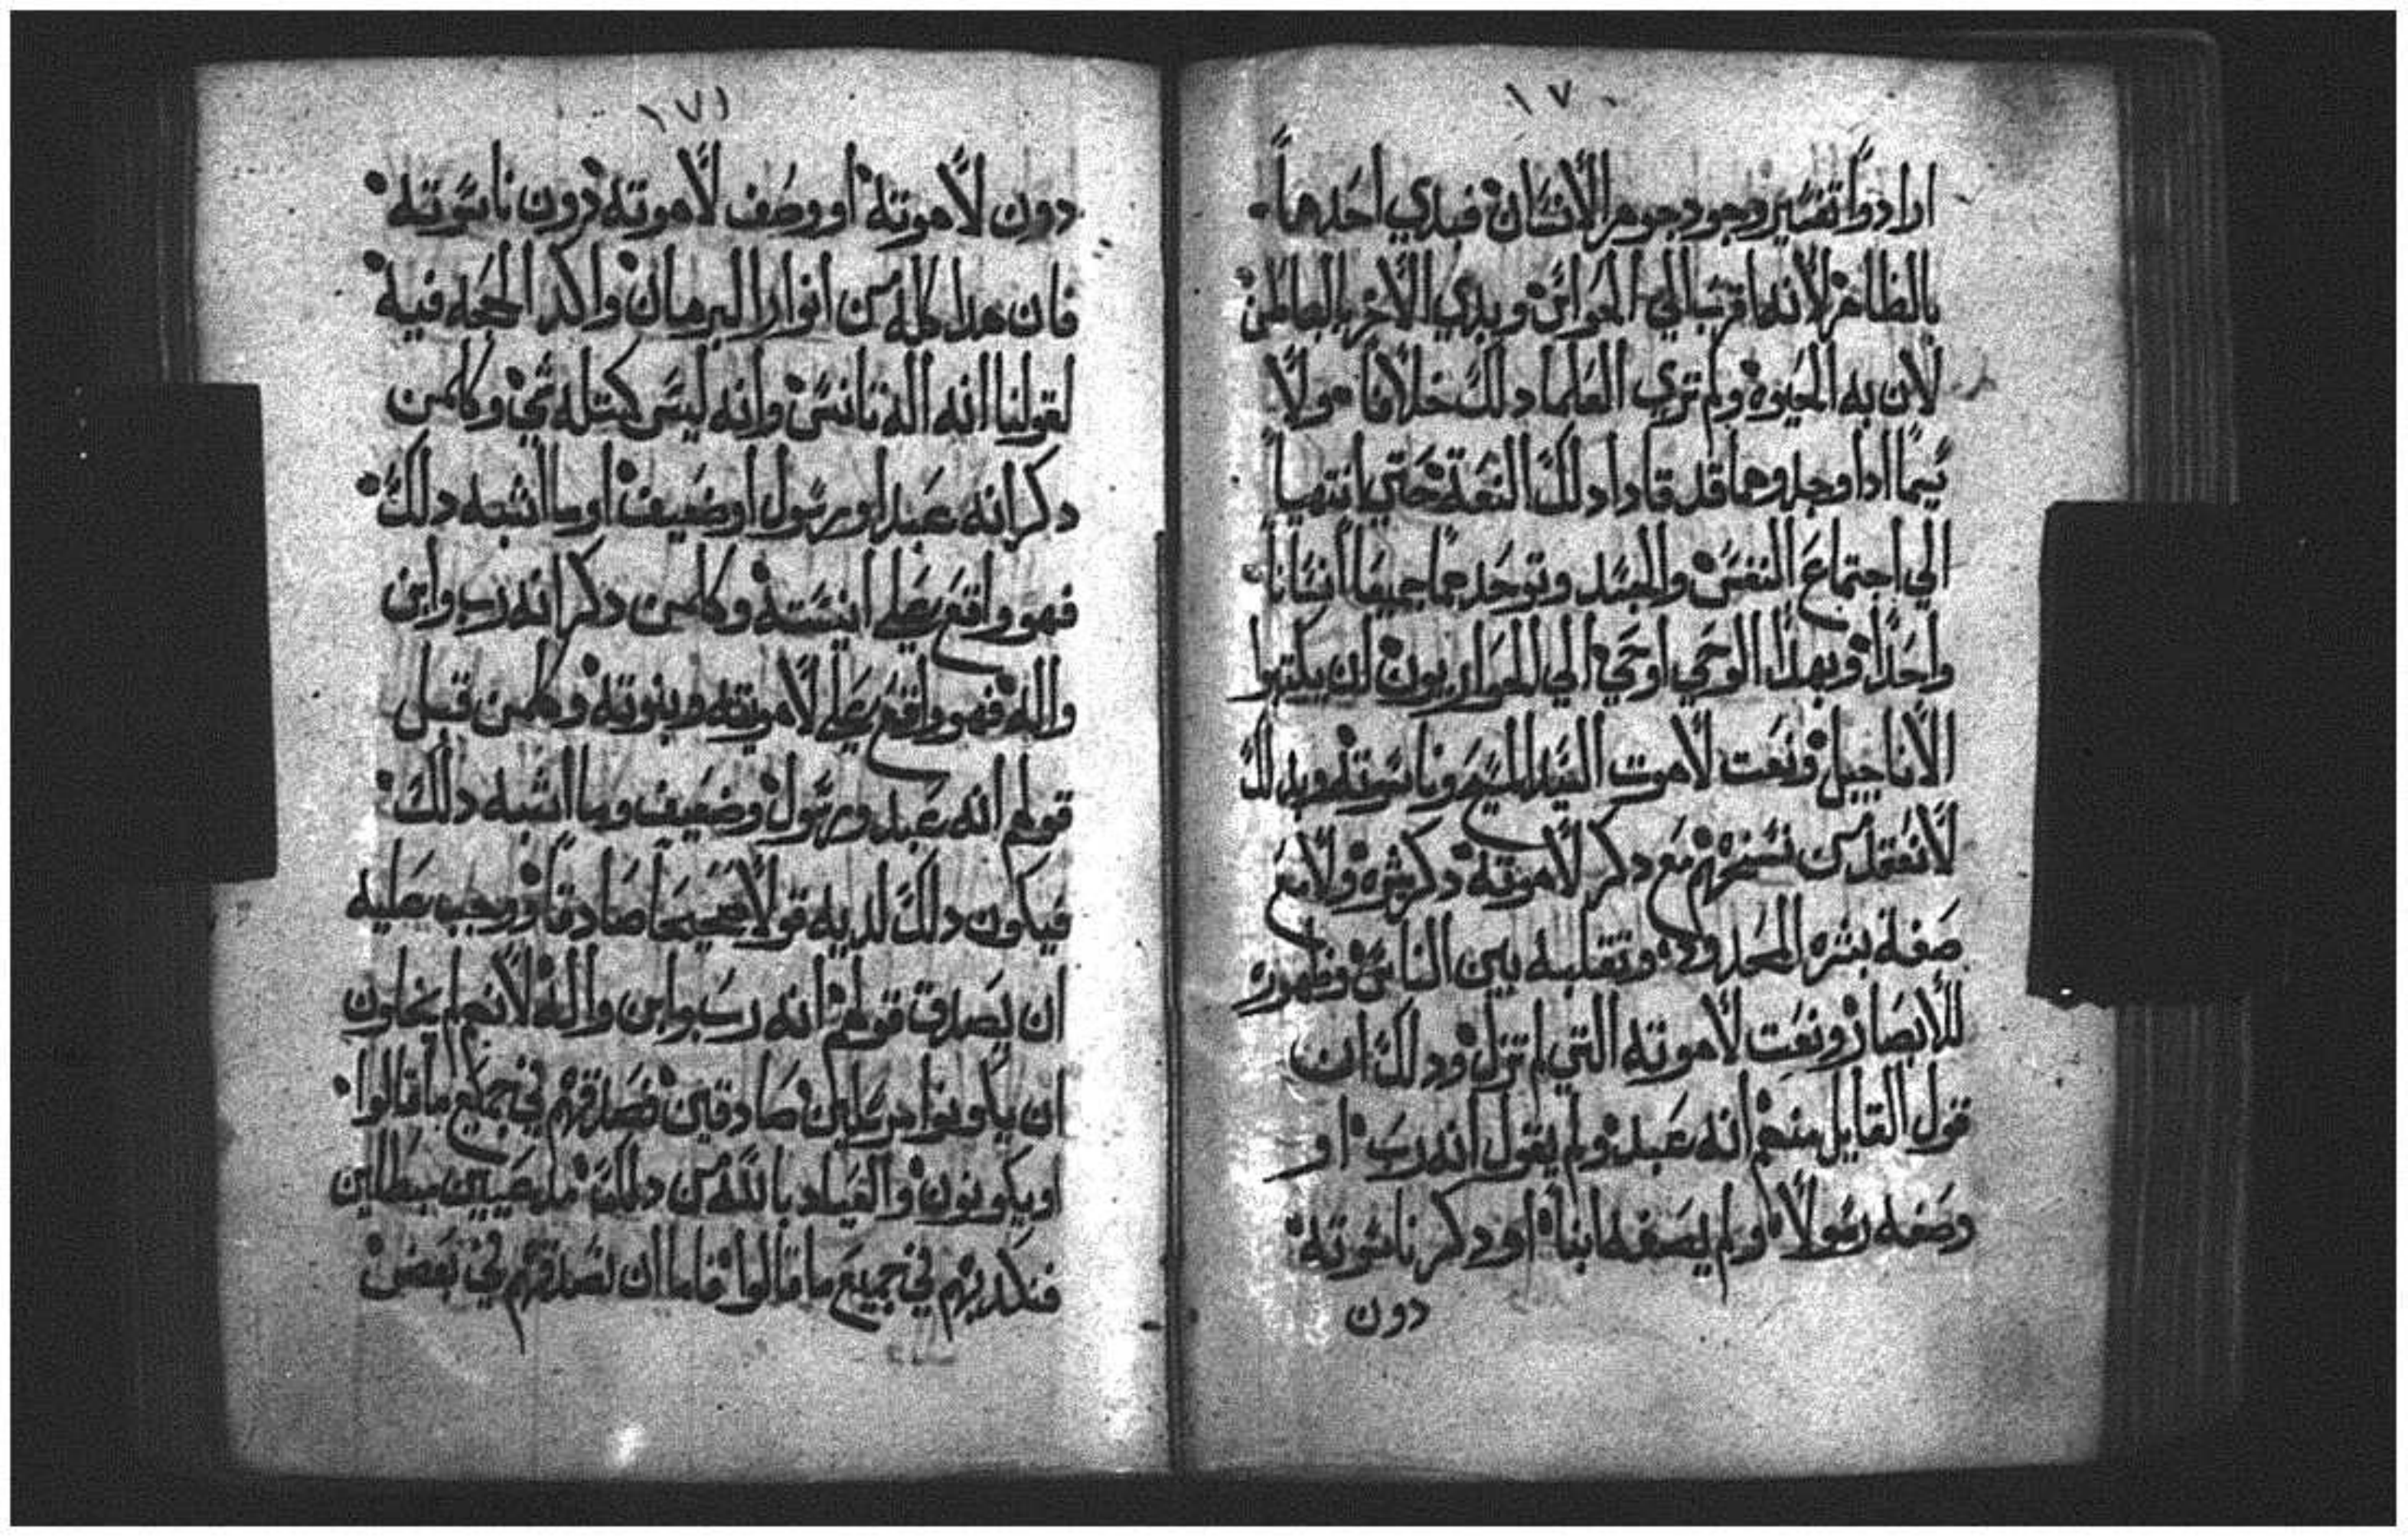 ١٧٠
ارادوا تفسير وجود جوهر الانسان فبدي احدهما
بالظاهر لانه اقرب الي الحواس وبدي الاخر بالباطن
لان به الحيوة ولم تري العلما دلك خلافا ولا
سيما ادا وجدوهما قد قادا دلك النعت حتي انتهيا
الي اجتماع النفس والجسد وتوحدهما جميعا انسانا
واحدا وبهدا الوحي اوحي الي الحواريون ان يكتبوا
الاناجيل ونعت لاهوت السيد المسيح وناسوته وبدلك
لا نعقل من نسخهم مع دكر لاهوته دكر بشره ولا مع
صفة بشره المحدود وتقلبه بين الناس وظهوره
للابصار ونعت لاهوته التي لم تزل ودلك ان
قول القايل منهم انه عبد ولم يقول انه رب او
وصفه رسولا ولم يصفه ابنا او دكر ناسوته
دون
١٧١
دون لاهوته او وصف لاهوته دون ناسوته
فان هدا كله من انوار البرهان واكد الحجه فيه
لقولنا انه اله تانس وانه ليس كمتله شي وكلمن
دكر انه عبد او رسول او ضعيف او ما اشبه دلك
فهو واقع علي انيسته وكلمن دكر انه رب وابن
واله فهو واقع علي لاهوته وبنوته وكلمن قبل
قولهم انه عبد ورسول وضعيف وما اشبه دلك
فيكون دلك لديه قولا صحيحا صادقا ووجب عليه
ان يصدق قولهم انه رب وابن واله لانهم لم يخلون
ان يكونوا مرسلين صادقين فصدقهم في جميع ما قالوا
او يكونون والعياد بالله من دلك مدعيين مبطلين
فنكدبهم في جميع ما قالوا فاما ان نصدقهم في بعض